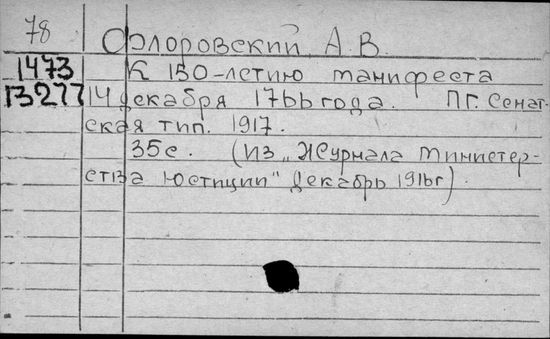 78
Флоровский А.В.
1473
К 150-летию манифеста
13277
14 декабря 1766 года. ПГ. Сенат-
ская тип. 1917.
35с. (Из „Журнала Министер-
ства Юстиции" Декабрь 1916г).